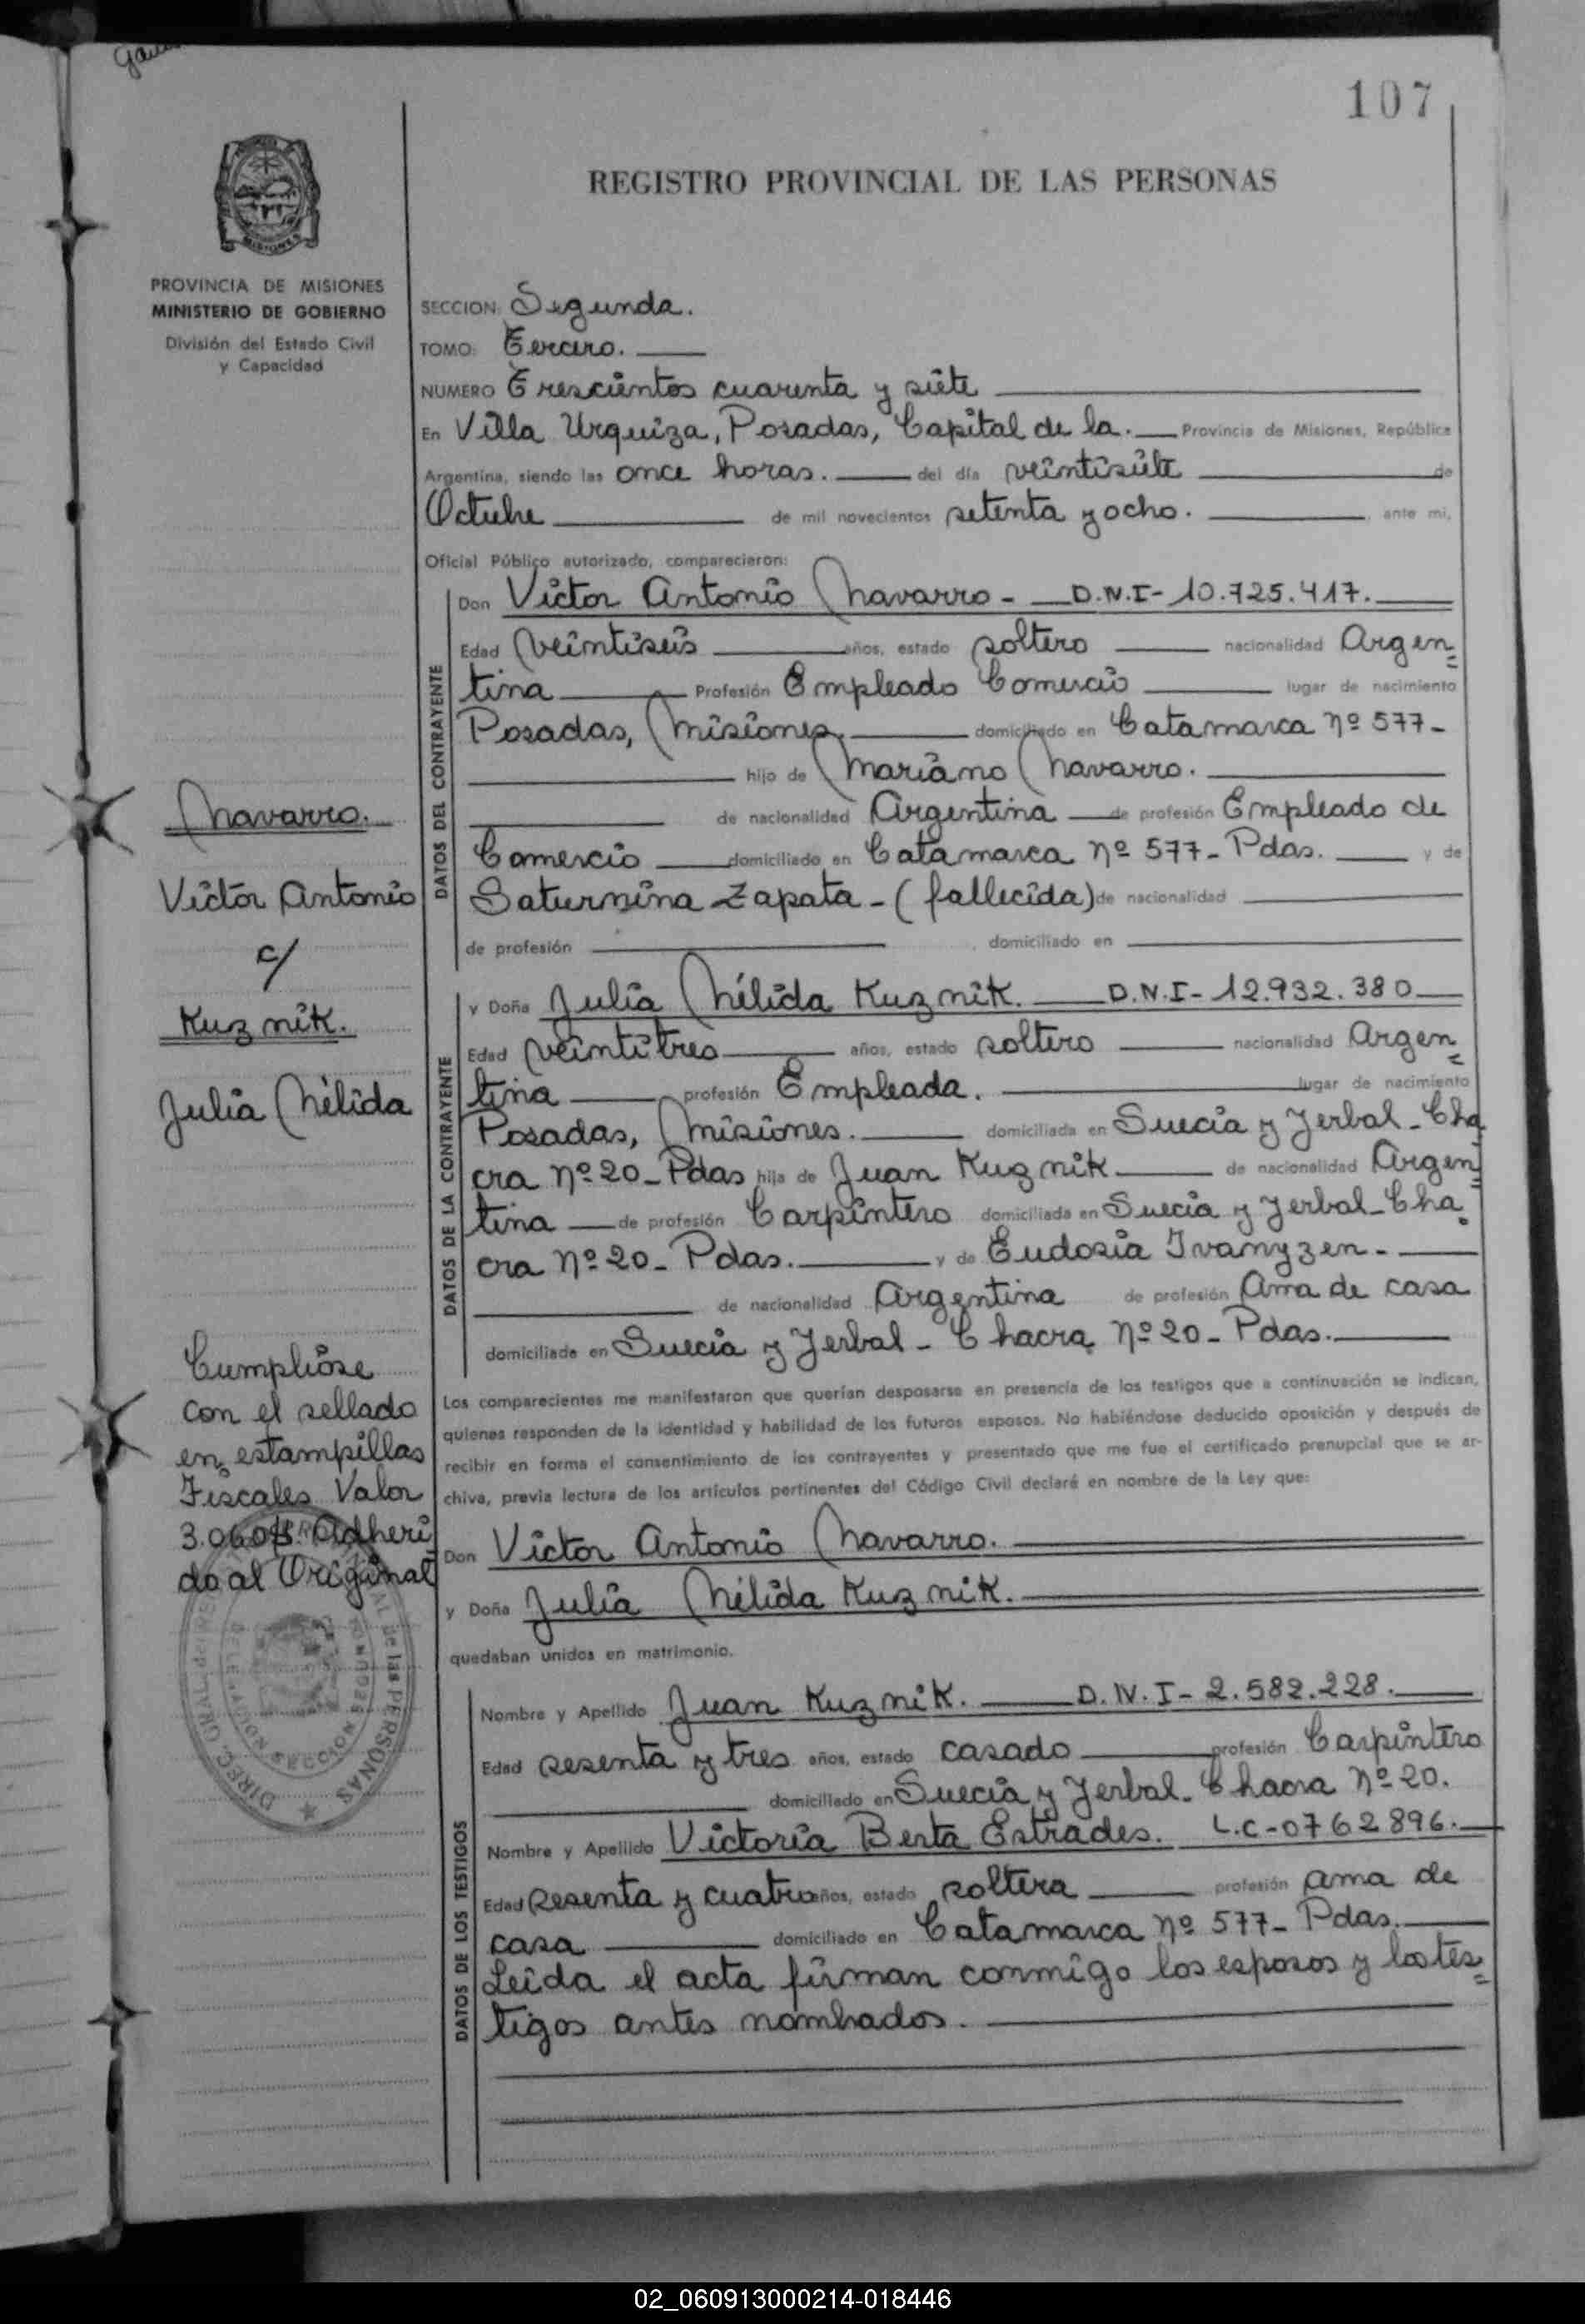 107
REGISTRO PROVINCIAL DE LAS PERSONAS
PROVINCIA DE MISIONES
MINISTERIO DE GOBIERNO
División del Estado Civil
y Capacidad
SECCION: Segunda.
TOMO: Tercero.
NUMERO Trescientos cuarenta y siete
En Villa Urquiza, Posadas, Capital de la. Provincia de Misiones, República
Argentina, siendo las once horas. del día veintisiete de
Octubre de mil novecientos setenta y ocho. ante mi,
Oficial Público autorizado, comparecieron:
DATOS DEL CONTRAYENTE
Don Victor Antonio Navarro - D.N.I- 10.725.417.
Edad Veintiseis años, estado soltero nacionalidad Argen=
tina Profesión Empleado Comercio lugar de nacimiento
Posadas, Misiones. domiciliado en Catamarca Nº 577-
hijo de Mariano Navarro.
de nacionalidad Argentina de profesión Empleado de
Comercio domiciliado en Catamarca Nº 577- Pdas. y de
Saturnina Zapata - (fallecida) de nacionalidad
de profesión , domiciliado en
DATOS DE LA CONTRAYENTE
y Doña Julia Nélida Kuznik. D.N.I- 12.932.380
Edad Veintitres años, estado soltero nacionalidad Argen=
tina profesión Empleada. lugar de nacimiento
Posadas, Misiones. domiciliada en Suecia y Yerbal - Cha
cra Nº 20 - Pdas hija de Juan Kuznik de nacionalidad Argen=
tina de profesión Carpintero domiciliada en Suecia y Yerbal - Cha
cra Nº 20 - Pdas. y de Eudosia Ivanyzen -
de nacionalidad Argentina de profesión Ama de casa
domiciliada en Suecia y Yerbal - Chacra Nº 20 - Pdas.
Los comparecientes me manifestaron que querían desposarse en presencia de los testigos que a continuación se indican,
quienes responden de la identidad y habilidad de los futuros esposos. No habiéndose deducido oposición y después de
recibir en forma el consentimiento de los contrayentes y presentado que me fue el certificado prenupcial que se ar-
chiva, previa lectura de los artículos pertinentes del Código Civil declaré en nombre de la Ley que:
Don Victor Antonio Navarro.
y Doña Julia Nélida Kuznik.
quedaban unidos en matrimonio.
DATOS DE LOS TESTIGOS
Nombre y Apellido Juan Kuznik. D.N.I- 2.582.228.
Edad sesenta y tres años, estado casado profesión Carpintero
domiciliado en Suecia y Yerbal - Chacra Nº 20.
Nombre y Apellido Victoria Berta Estrades. L.C-0762896.
Edad Sesenta y cuatro años, estado soltera profesión ama de
casa domiciliado en Catamarca Nº 577- Pdas.
Leida el acta firman conmigo los esposos y los tes=
tigos antes nombrados.
Navarro.
Victor Antonio
c/
Kuznik.
Julia Nélida
Cumplióse
con el sellado
en estampillas
Fiscales Valor
3.060$. Adheri
do al Original
02_060913000214-018446